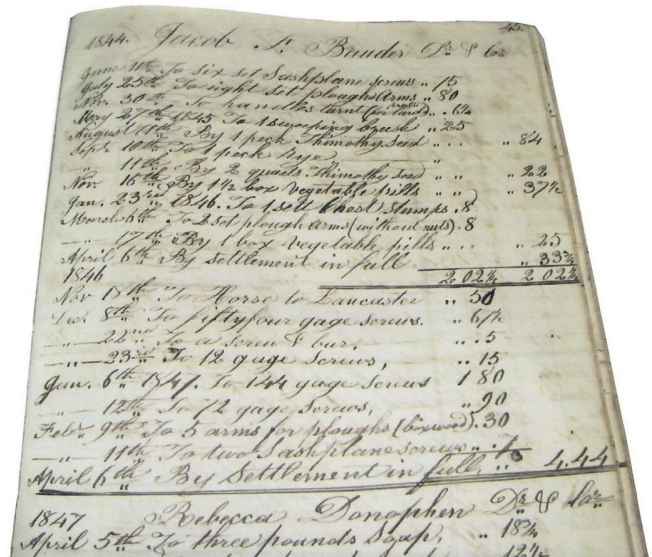 45.
1844. Jacob F. Bauder Dr. & Cr.
June 11th To six set Sashplane screws .. 15
July 25th To eight set plough Arms .. 80
Nov. 30th To handles turnt .. 6¼
May 27th 1845 To 1 sweeping brush .. 25
August 11th By 1 peck Thimothy Seed .. .. .. 84
Sept. 10th To 1 peck Rye ..
" 11th By 2 quarts Thimothy Seed .. .. .. 22
Nov. 15th By 1½ box Vegetable pills .. .. .. 37½
Jan. 23rd 1846. To 1 sett Chest Stumps . 8
March 6th To 2 set plough arms (without nuts) . 8
" 17th By 1 box Vegetable pills .. .. .. 25
April 6th By Settlement in full .. 33¾
1846 2 02¼ 2 02¼
Nov 18th To Horse to Lancaster .. 50
Dec. 8th To fiftyfour gage Screws. .. 67½
" 22nd To a Screw & bur, .. 5
" 23rd To 12 gage Screws, .. 15
Jan. 6th 1847. To 144 gage Screws 1 80
" 12th To 72 gage Screws, .. 90
Feb. 9th To 5 arms for ploughs (boxwood) . 30
" 11th To two Sashplane screws ..
April 6th By Settlement in full, 4.44
1847 Rebecca Donophen Dr. & Cr.
April 5th To three pounds Soap, .. 18¾
12½